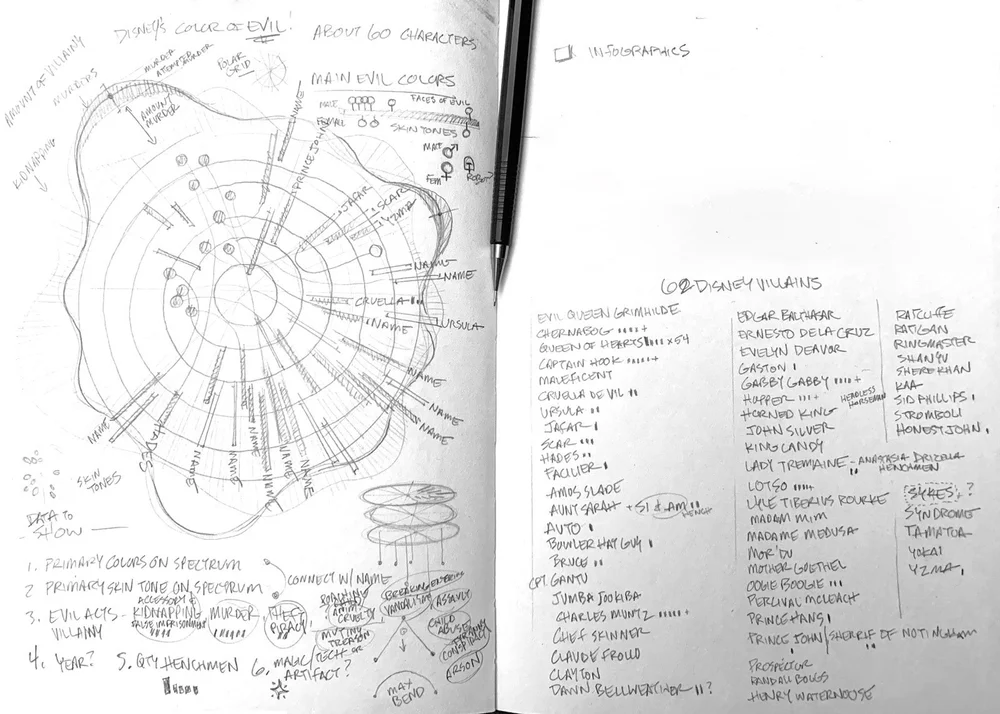 DISNEY'S COLOR OF EVIL!
ABOUT 60 CHARACTERS
AMOUNT OF VILLAINY
MURDERS
KIDNAPPING
MURDER
ATOMIC BORDER
POLAR
GRID
AMOUNT
MURDER
MAIN EVIL COLORS
MALE
FACES OF EVIL
FEMALE
SKIN TONES
MALE
FEM
ROBOT?
NAME
PRINCE JOHN
JAFAR
SCAR
YZMA
NAME
NAME
CRUELLA
NAME
URSULA
NAME
NAME
NAME
NAME
HADES
NAME
NAME
NAME
NAME
NAME
SKIN
TONES
DATA TO
SHOW
1. PRIMARY COLORS ON SPECTRUM
2 PRIMARY SKIN TONE ON SPECTRUM
CONNECT W/ NAME
3. EVIL ACTS - KIDNAPPING MURDER, THEFT
ACCESSORY
VILLAINY FALSE IMPRISONMENT PIRACY
ANIMAL
CRUELTY
MUTINY
TREASON
BREAKING ENTERING
VANDALISM
ASSAULT
CHILD
ABUSE
CONSPIRACY
ARSON
4. YEAR? 5. QTY HENCHMEN 6. MAGIC/
TECH OR
ARTIFACT?
MAX
BEND
INFOGRAPHICS
62 DISNEY VILLAINS
EVIL QUEEN GRIMHILDE
CHERNABOG
QUEEN OF HEARTS x 54
CAPTAIN HOOK
MALEFICENT
CRUELLA DE VIL
URSULA
JAFAR
SCAR
HADES
FACILIER
AMOS SLADE
AUNT SARAH + SI & AM
HENCH
AUTO
BOWLER HAT GUY
BRUCE
CPT. GANTU
JUMBA JOOKIBA
CHARLES MUNTZ
CHEF SKINNER
CLAUDE FROLLO
CLAYTON
DAWN BELLWEATHER ?
EDGAR BALTHAZAR
ERNESTO DE LA CRUZ
EVELYN DEAVOR
GASTON
GABBY GABBY
HOPPER
HEADLESS
HORSEMAN
HORNED KING
JOHN SILVER
KING CANDY
LADY TREMAINE - ANASTASIA DRIZELLA
HENCHMEN
LOTSO
LYLE TIBERIUS ROURKE
MADAM MIM
MADAME MEDUSA
MOR'DU
MOTHER GOETHEL
OOGIE BOOGIE
PERCIVAL MCLEACH
PRINCE HANS
PRINCE JOHN/SHERRIF OF NOTINGHAM
PROSPECTOR
RANDALL BOGGS
HENRY WATERNOOSE
RATCLIFFE
RATIGAN
RINGMASTER
SHAN YU
SHERE KHAN
KAA
SID PHILLIPS
STROMBOLI
HONEST JOHN
SYKES ?
SYNDROME
TAMATOA
YOKAI
YZMA